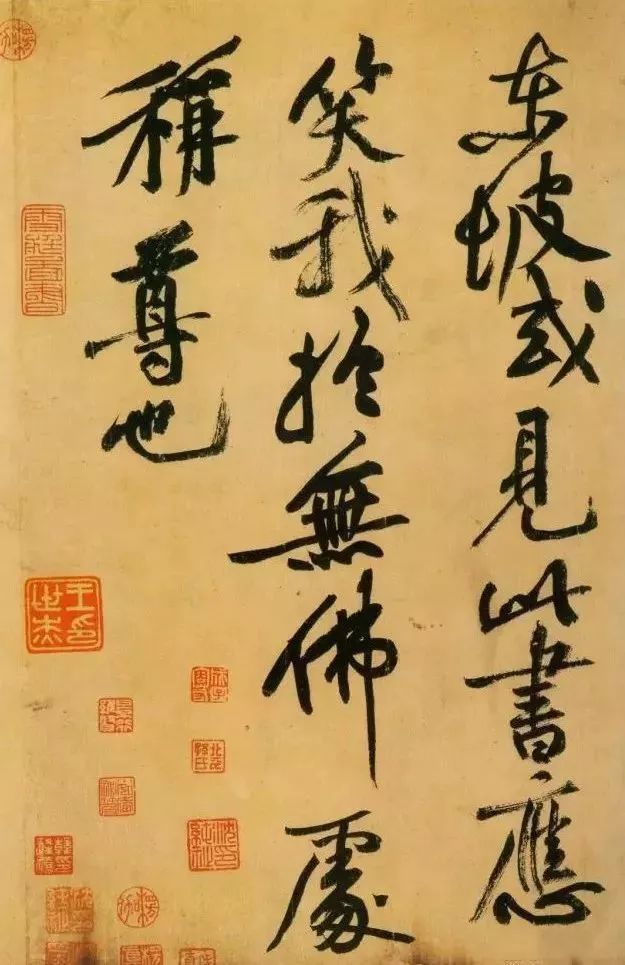 東坡或見此書應
笑我於無佛處
稱尊也
王印
世杰